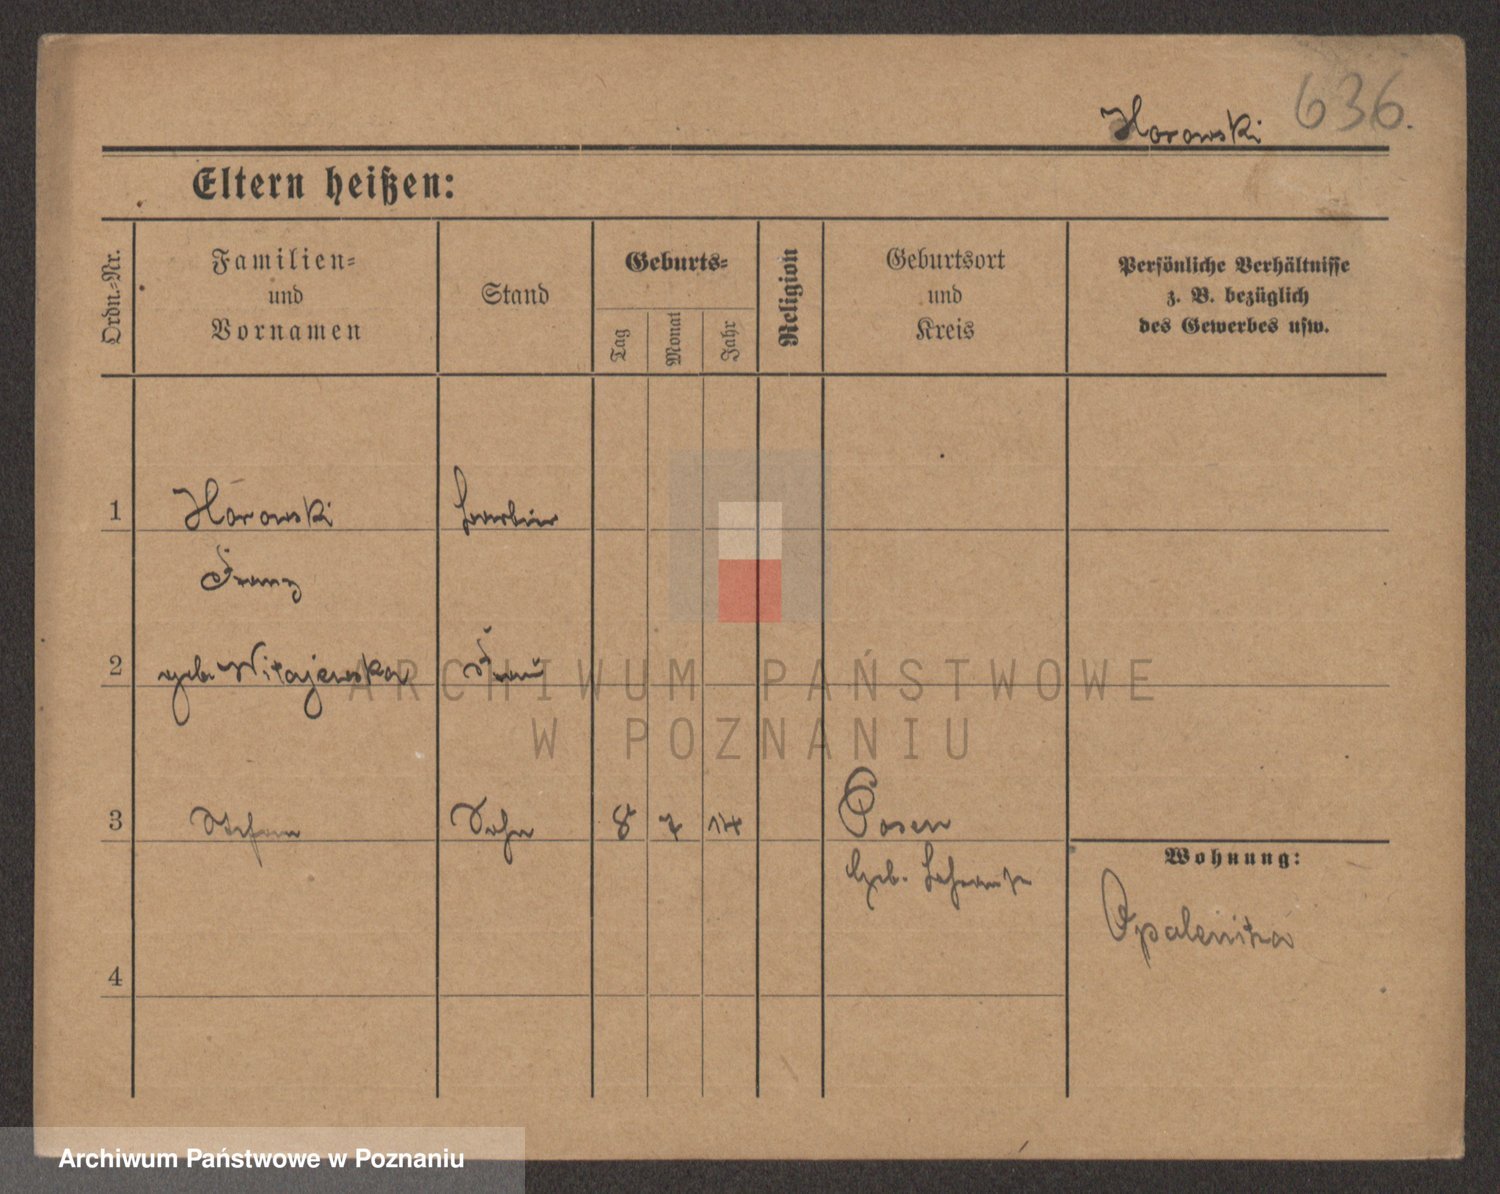 636.
Horowski
Eltern heißen:
Ordn.=Nr.
Familien=
und
Vornamen
Stand
Geburts=
Tag
Monat
Jahr
Religion
Geburtsort
und
Kreis
Persönliche Verhältnisse
z. B. bezüglich
des Gewerbes usw.
1 Horowski
Franz
2 geb. Witajewska Frau
3 Stefan Sohn 8 7 14 Posen
Geb.
Wohnung:
Opalenitza
4
ARCHIWUM PAŃSTWOWE
W POZNANIU
Archiwum Państwowe w Poznaniu